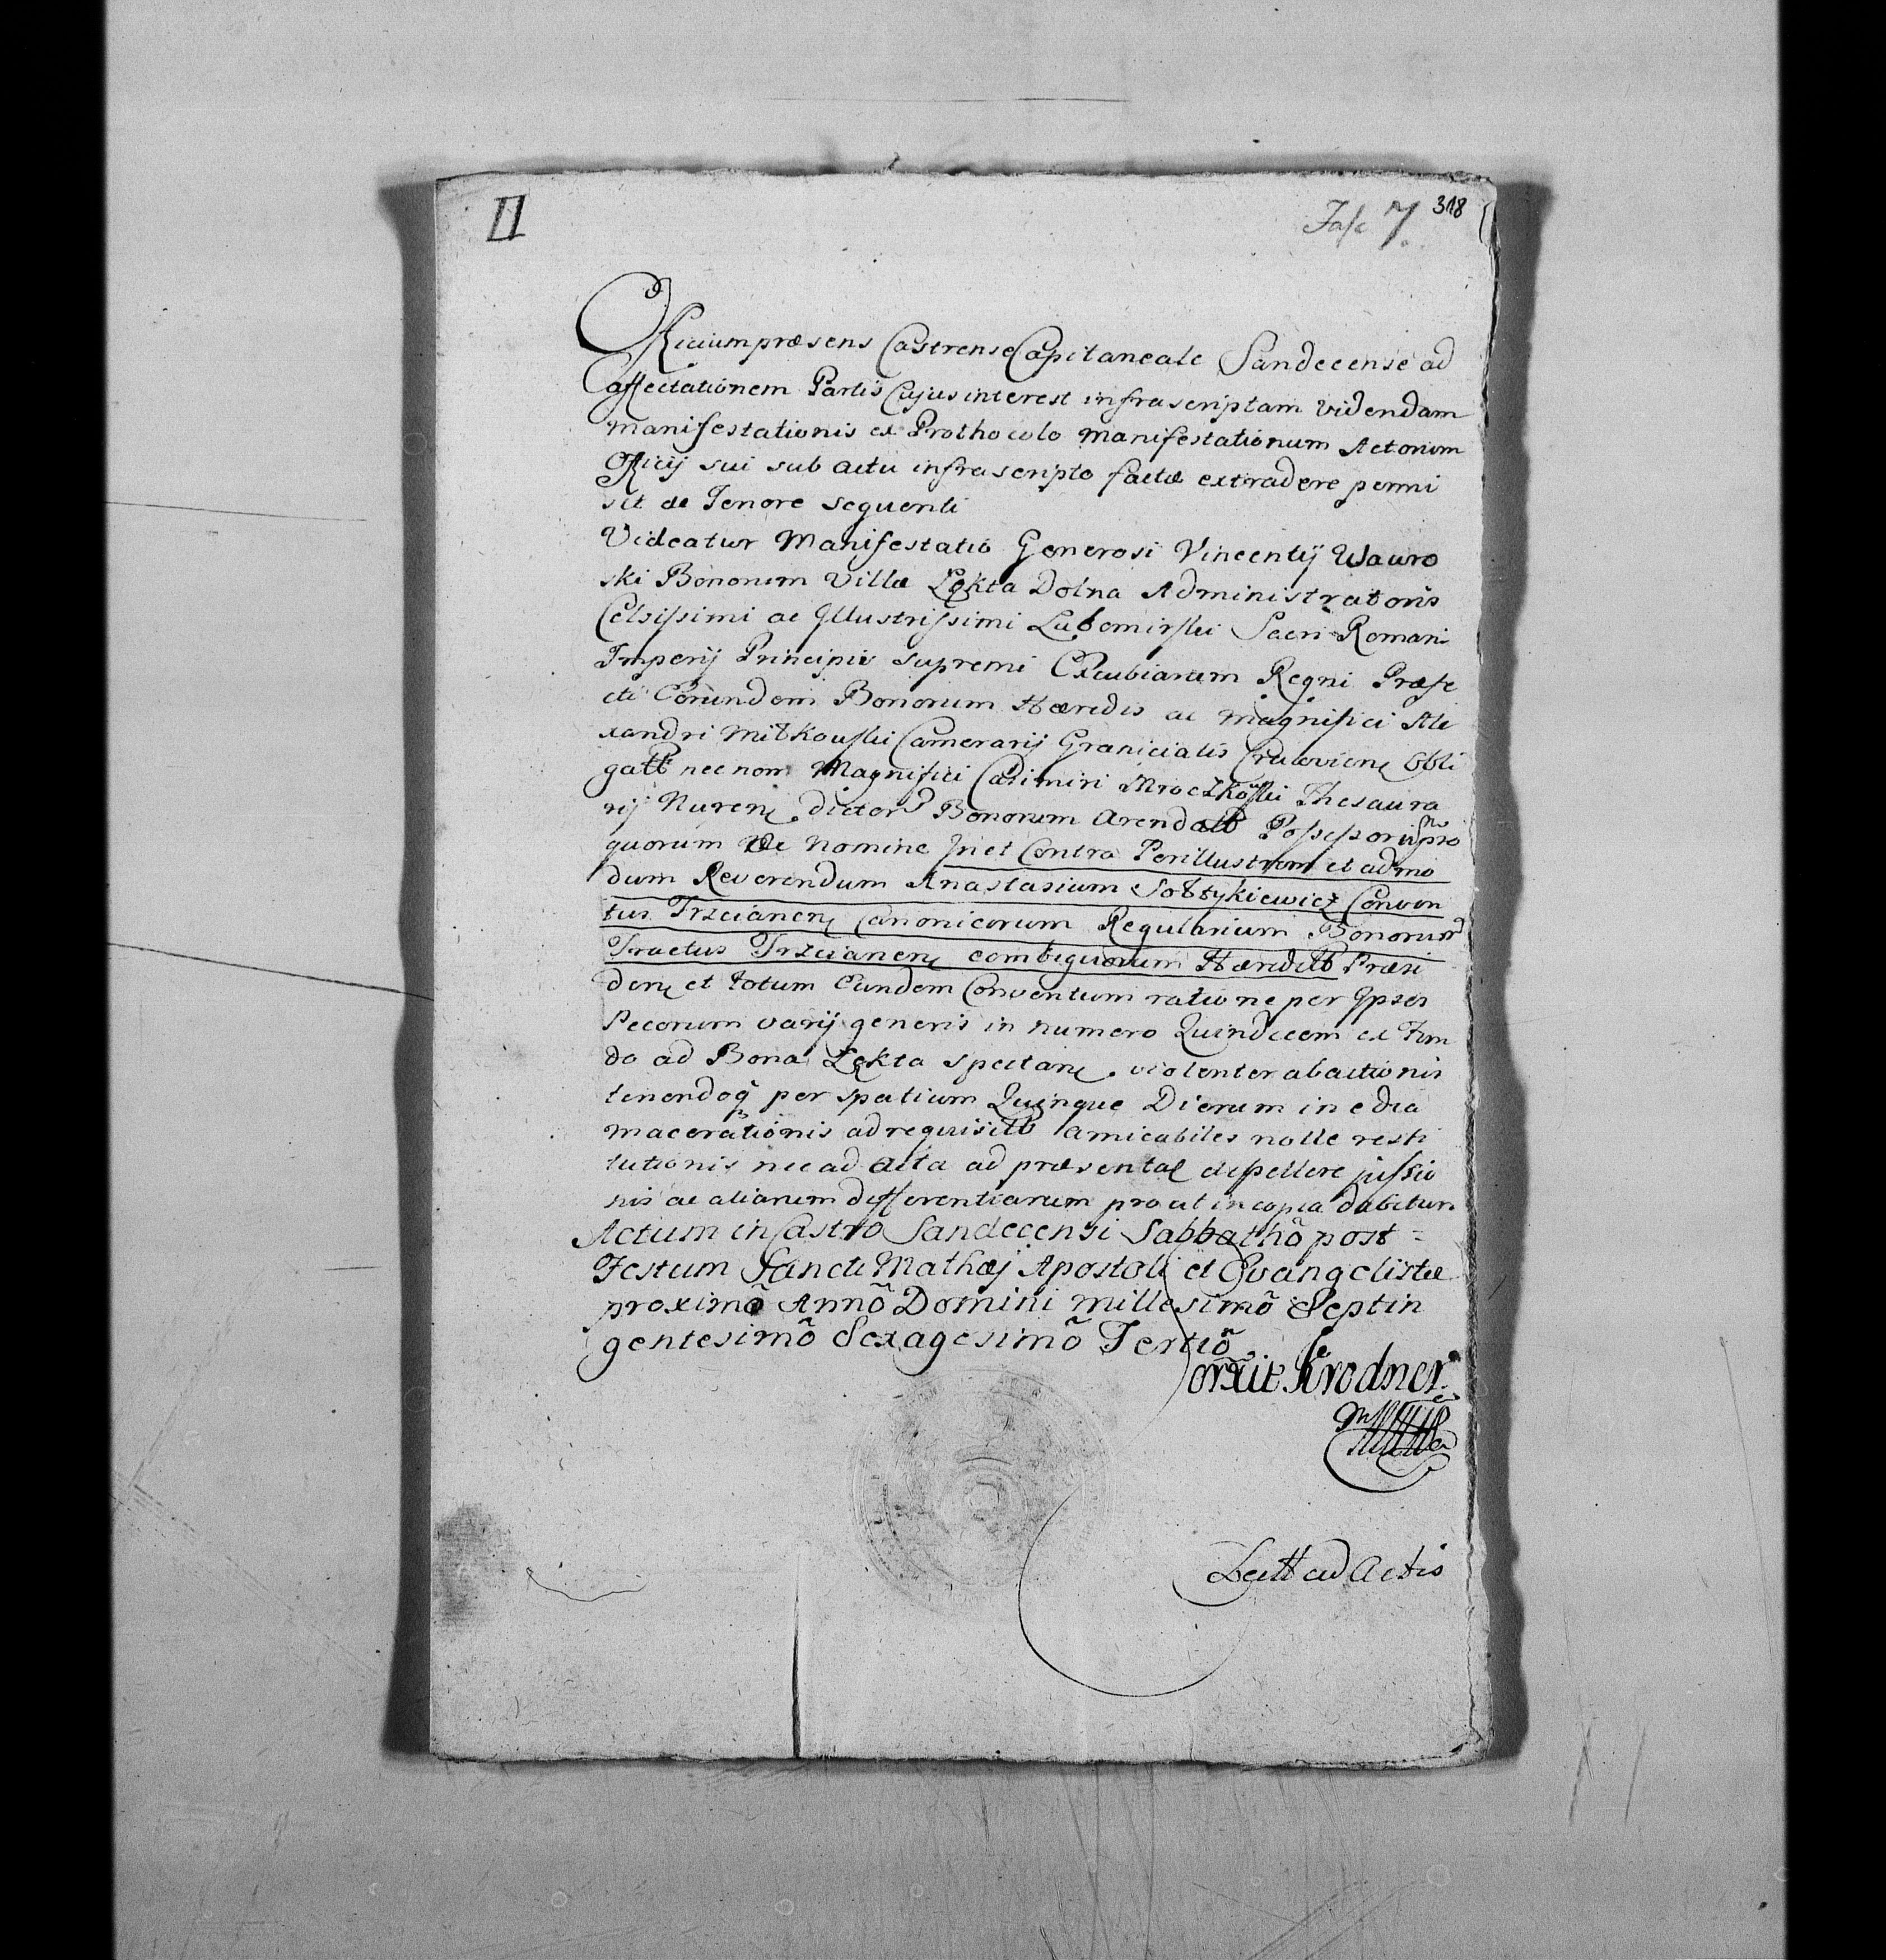 II
Fasc 7. 318
Officium præsens Castrense Capitaneale Sandecense ad
affectationem Partis Cujus interest infrascriptam videndam
Manifestationis ex Prothocolo Manifestationum Actorum
Officij sui sub actu infrascripto factæ extradere permi
sit de Tenore sequenti
Videatur Manifestatio Generosi Vincentij Wawro
ski Bonorum Villæ Łękta Dolna Administratoris
Celsissimi ac Illustrissimi Lubomirski Sacri Romani
Imperij Principis supremi Excubiarum Regni Præfe
cti Eorundem Bonorum Hæredis ac Magnifici Ale
xandri Miłkowski Camerarij Granicialis Cracovien Obli
gatt nec non Magnifici Casimiri Mroczkowski Thesaura
rij Nuren dictor Bonorum Arendatt Possessoris pro
quorum Nomine In et Contra Perillustrem et admo
dum Reverendum Anastasium Sołtykiewicz Conven
tus Trzcianen Canonicorum Regularium Bonorum
Tractus Trzcianen contiguorum Hæredıtt Præsi
den et totum Eundem Conventum ratione per Ipsos
Pecorum varij generis in numero Quindecem ex Fun
do ad Bona Łękta spectan violenter abactionis
tenendoq per spatium Quinque Dierum in edia
macerationis ad requisitt amicabiles nolle resti
tutionis nec ad acta ad præsental depellere jussio
nis ac aliarum differentiarum prout in copia dabitur
Actum in Castro Sandecensi Sabbathô post
Festum Sancti Mathæj Apostoli et Evangelistæ
proximô Annô Domini millesimô Septin
gentesimô Sexagesimô Tertiô
Corxit Krodner
Lectt cu Actis